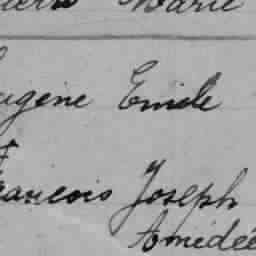 Marie
ugène Emile
François Joseph
Amédée